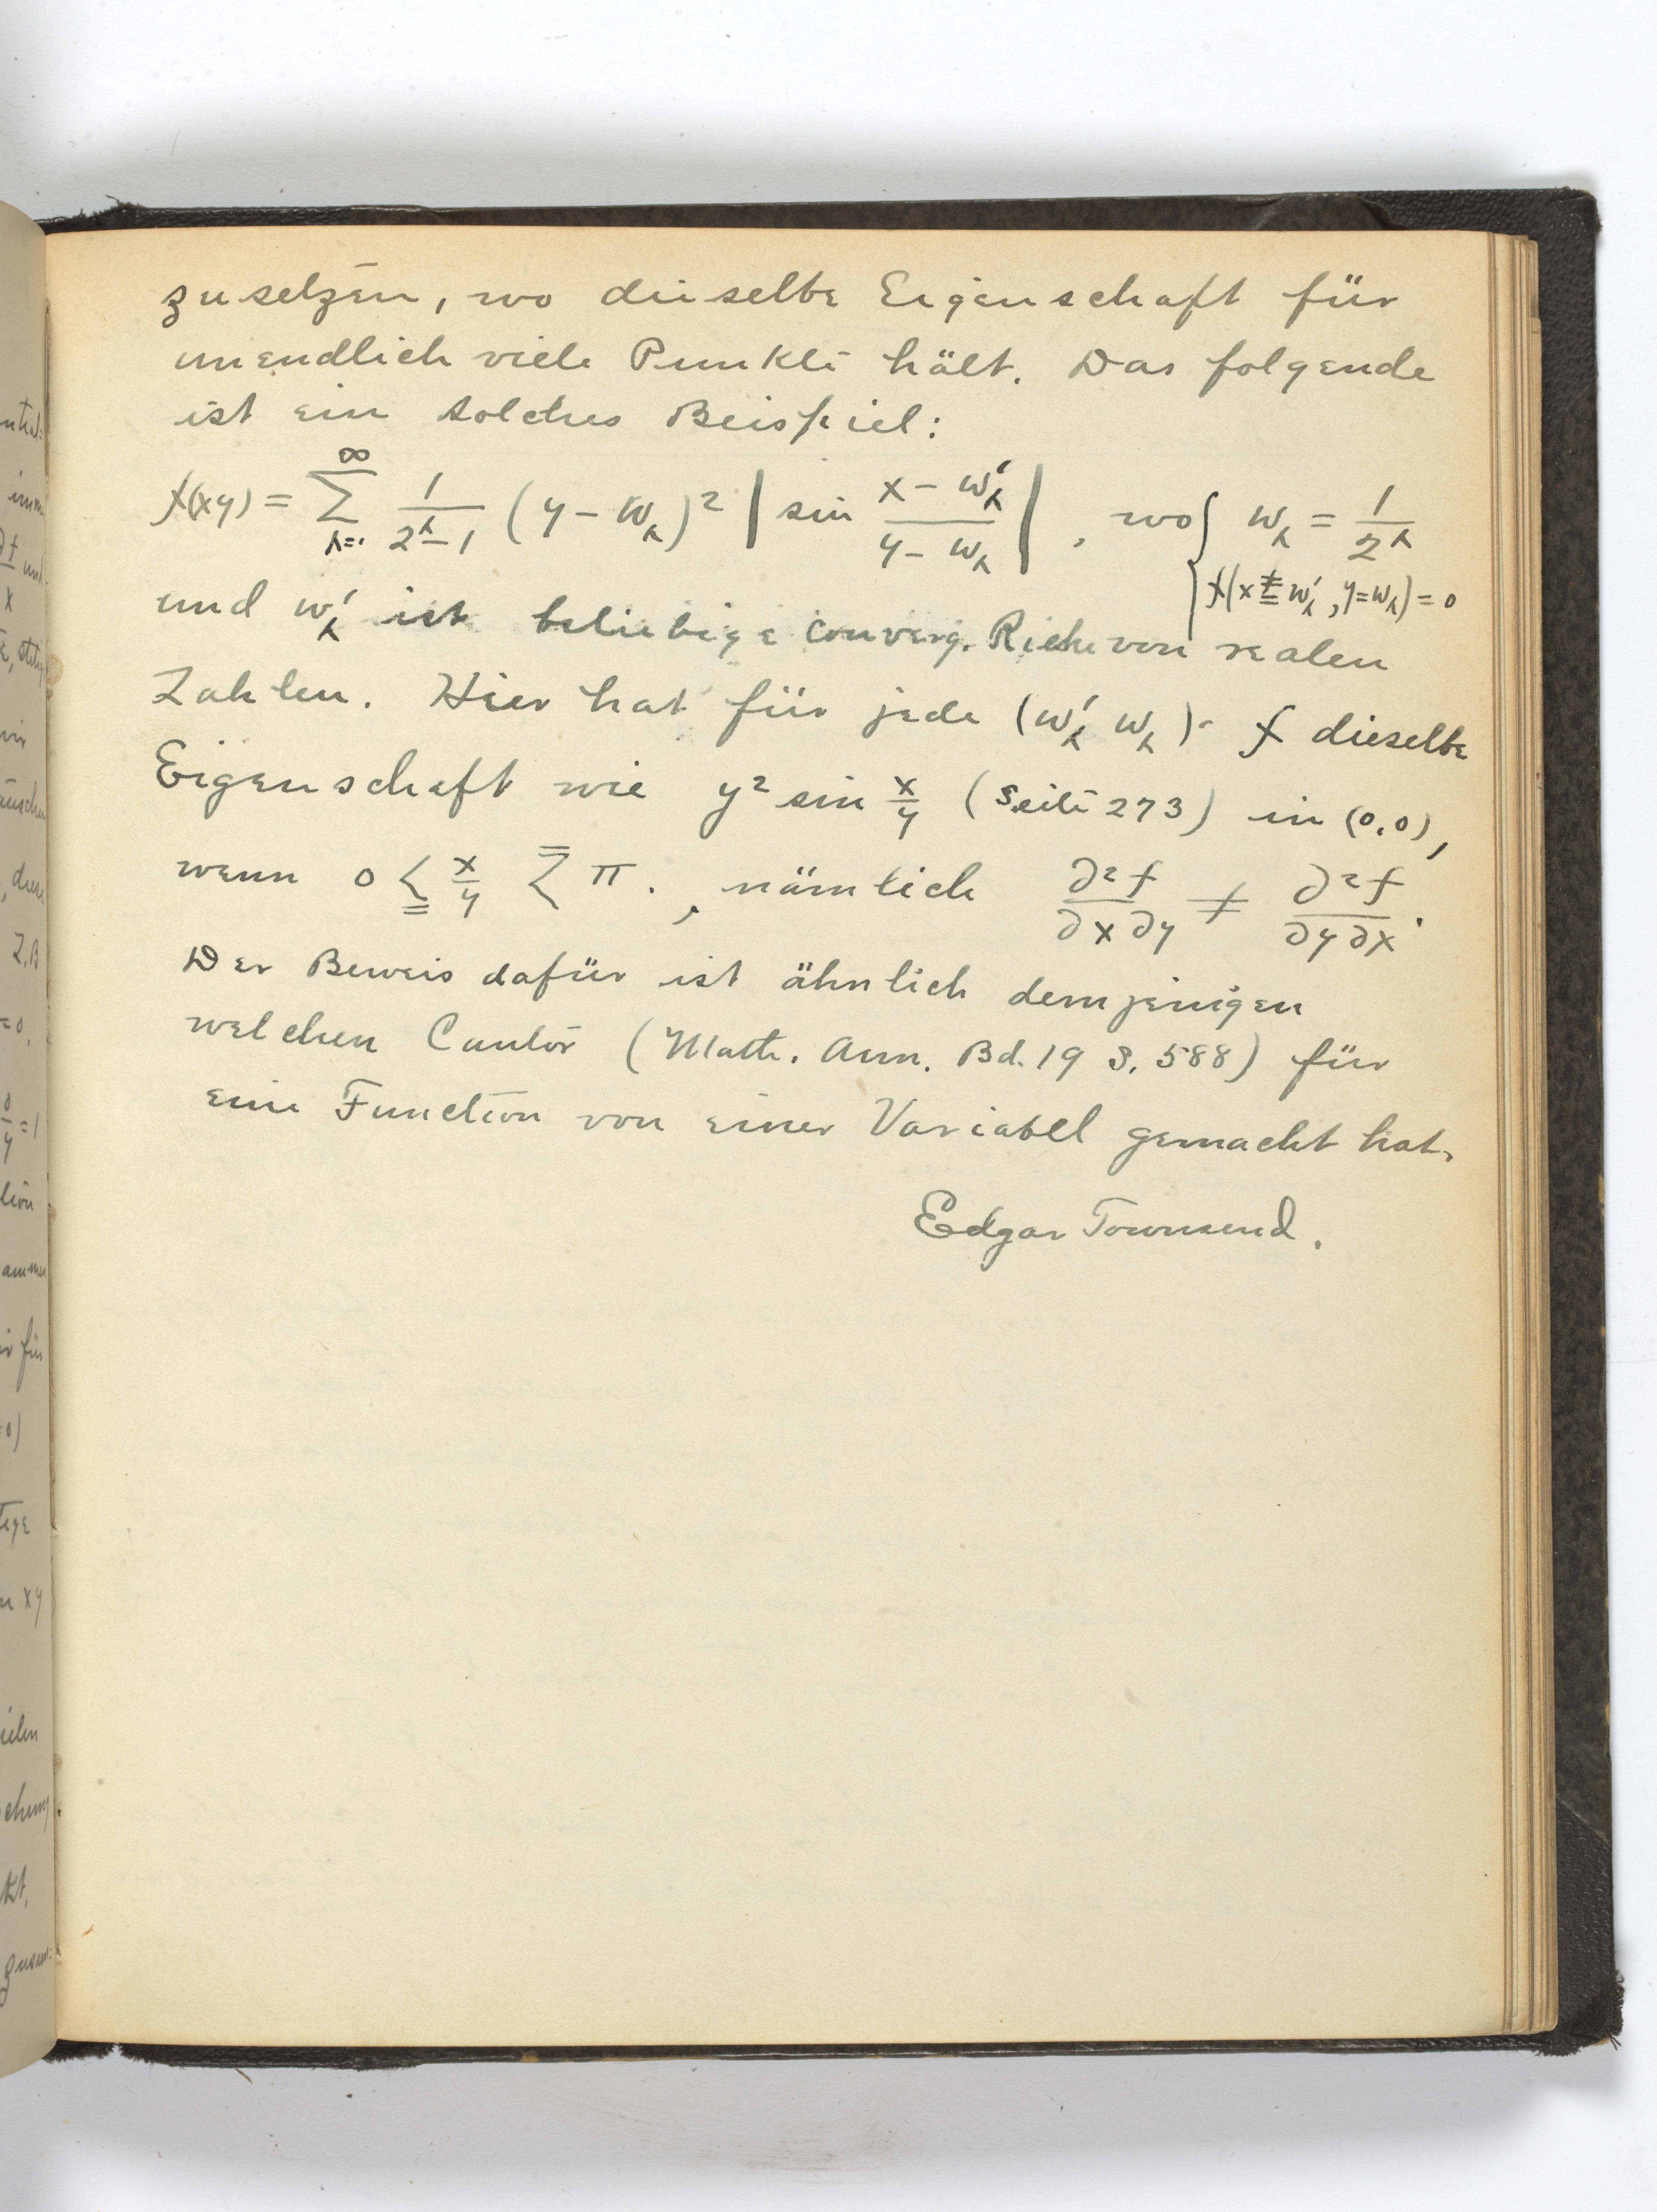 zusetzen, wo dieselbe Eigenschaft für
unendlich viele Punkte hält. Das folgende
ist ein solches Beispiel:
f(xy) = ∑_{λ=1}^{∞} 1/(2^λ - 1) (y - w_λ)² | sin (x - w'_λ)/(y - w_λ) |, wo { w_λ = 1/2^λ
{ f(x ≠= w'_λ, y = w_λ) = 0
und w'_λ ist beliebige converg. Riehe von realen
Zahlen. Hier hat für jede (w'_λ w_λ) f dieselbe
Eigenschaft wie y² sin x/y (Seite 273) in (0,0),
wenn 0 ≦ x/y ≦ π., nämlich ∂²f/∂x∂y ≠ ∂²f/∂y∂x.
Der Beweis dafür ist ähnlich demjenigen
welchen Cantor (Math. Ann. Bd. 19 S. 588) für
eine Function von einer Variabel gemacht hat.
Edgar Townsend.